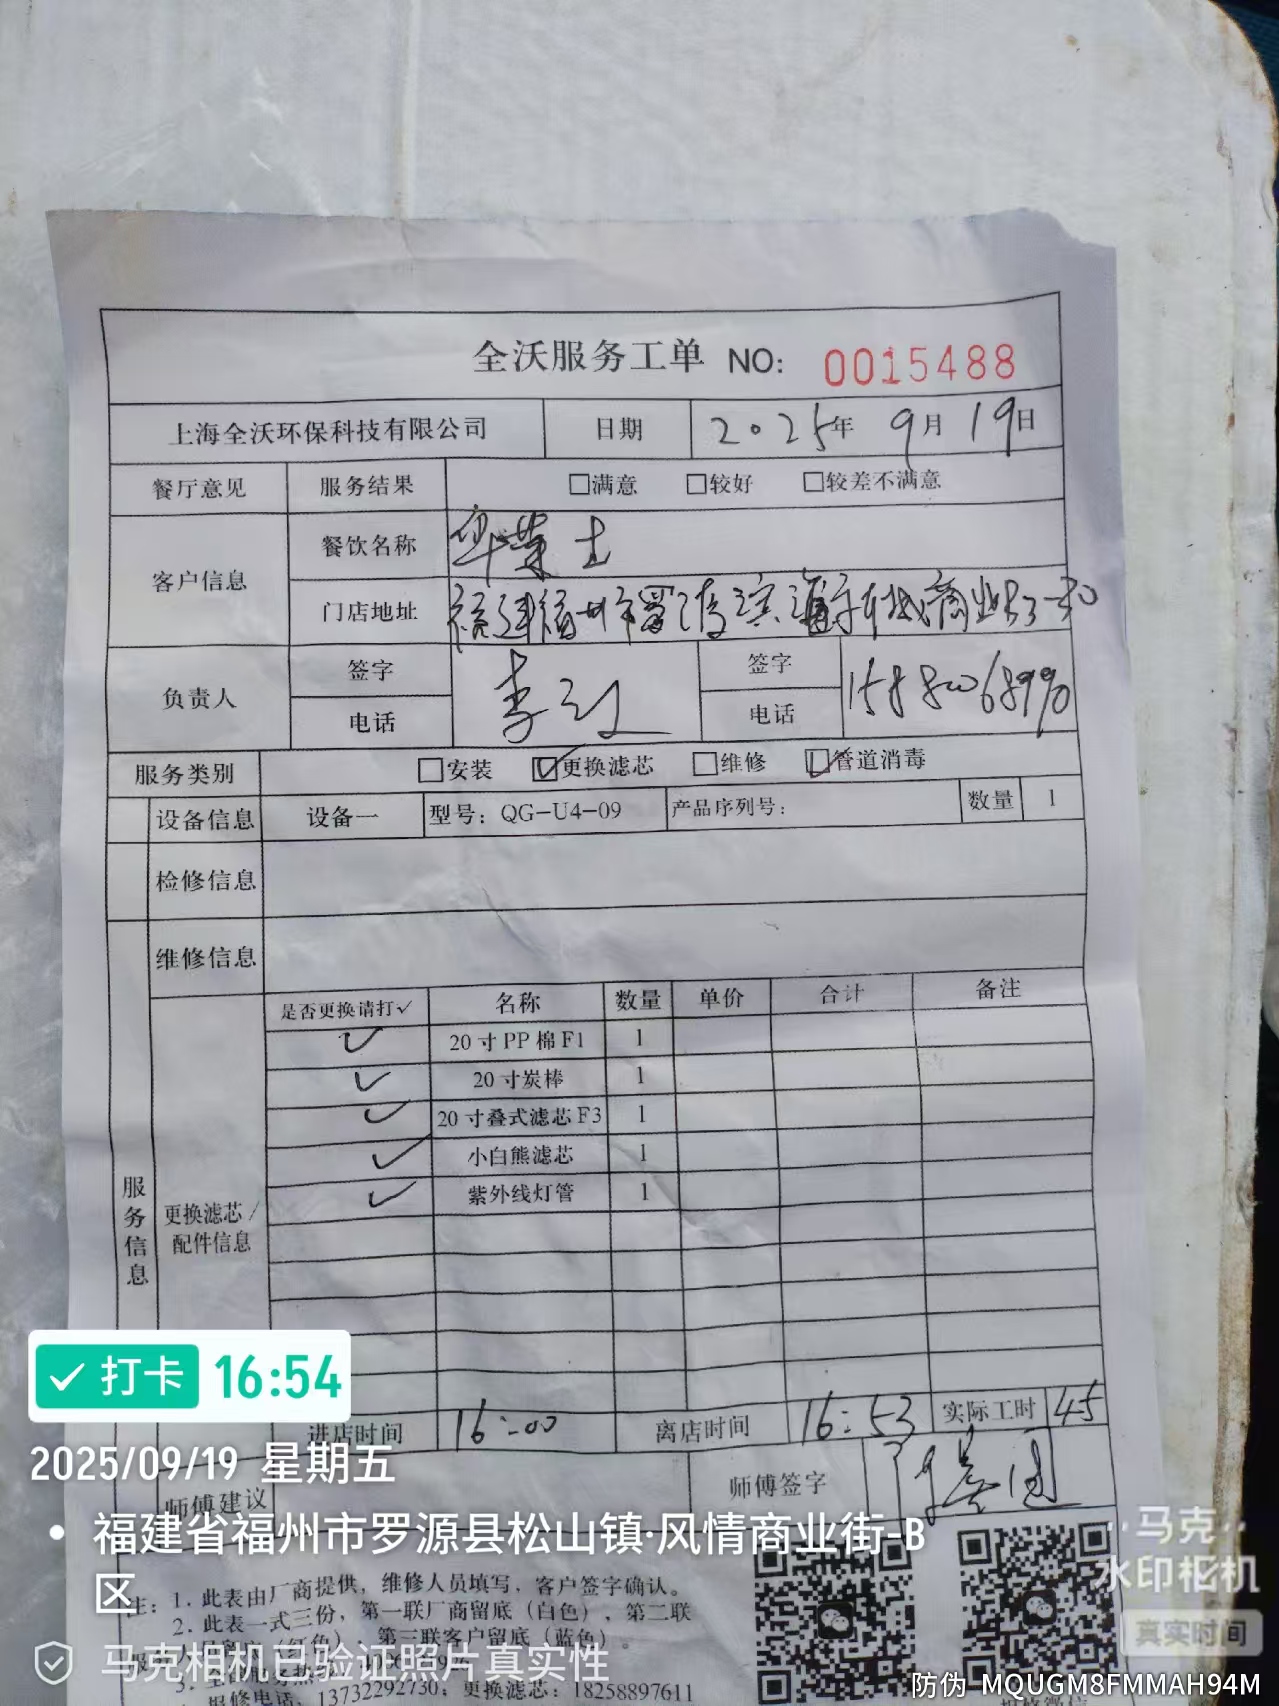 全沃服务工单 NO: 0015488
上海全沃环保科技有限公司 日期 2025年 9月 19日
餐厅意见 服务结果 □满意 □较好 □较差不满意
客户信息 餐饮名称 华莱士
门店地址
负责人 签字 签字
电话 电话
服务类别 □安装 ☑更换滤芯 □维修 ☑管道消毒
设备信息 设备一 型号: QG-U4-09 产品序列号: 数量 1
检修信息
维修信息
是否更换请打✓ 名称 数量 单价 合计 备注
✓ 20寸PP棉F1 1
✓ 20寸炭棒 1
✓ 20寸叠式滤芯F3 1
✓ 小白熊滤芯 1
✓ 紫外线灯管 1
服务信息
更换滤芯/
配件信息
✓ 打卡 16:54
进店时间 16:00 离店时间 16:53 实际工时 45
2025/09/19 星期五
师傅建议 师傅签字
• 福建省福州市罗源县松山镇·风情商业街-B
区
注: 1. 此表由厂商提供, 维修人员填写, 客户签字确认。
2. 此表一式三份, 第一联厂商留底(白色), 第二联
第三联客户留底(蓝色)。
报修电话: 13732292730; 更换滤芯: 18258897611
马克相机已验证照片真实性
马克
水印相机
真实时间
防伪 MQUGM8FMMAH94M